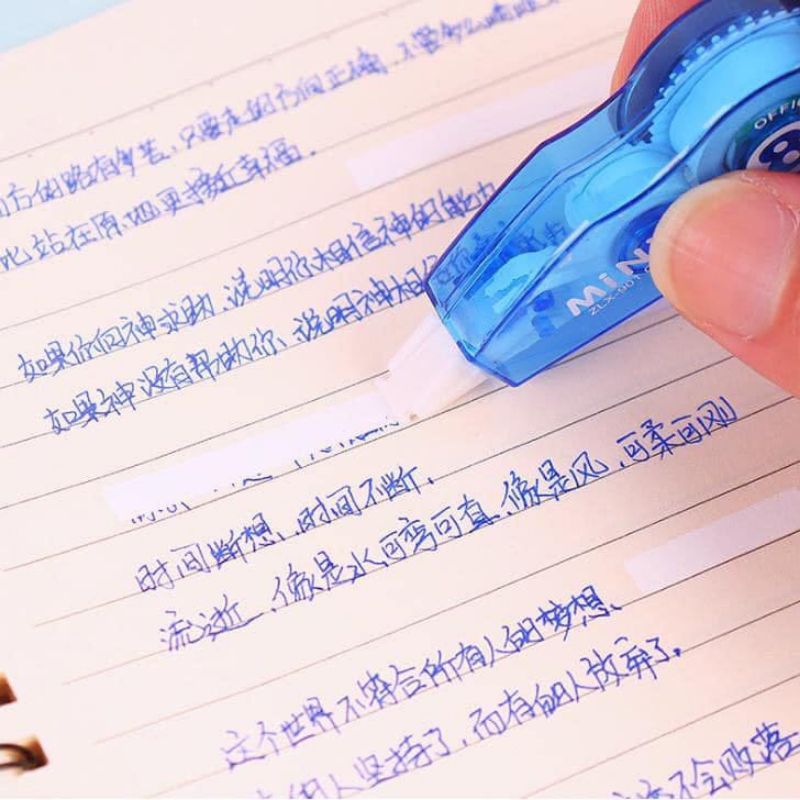 方的路有多苦,只要走的方向正确,不管多么崎岖
比站在原地更接近幸福.
如果你向神求助,说明你相信神的能力
如果神没有帮助你、说明神相信你
时间断想,时间不断.
流逝,像是水可弯可直,像是风,可柔可刚
这个世界不符合所有人的梦想、
有的人坚持了,而有的人放弃了.
不会败落
OFFIC
MiNi
ZLX-901